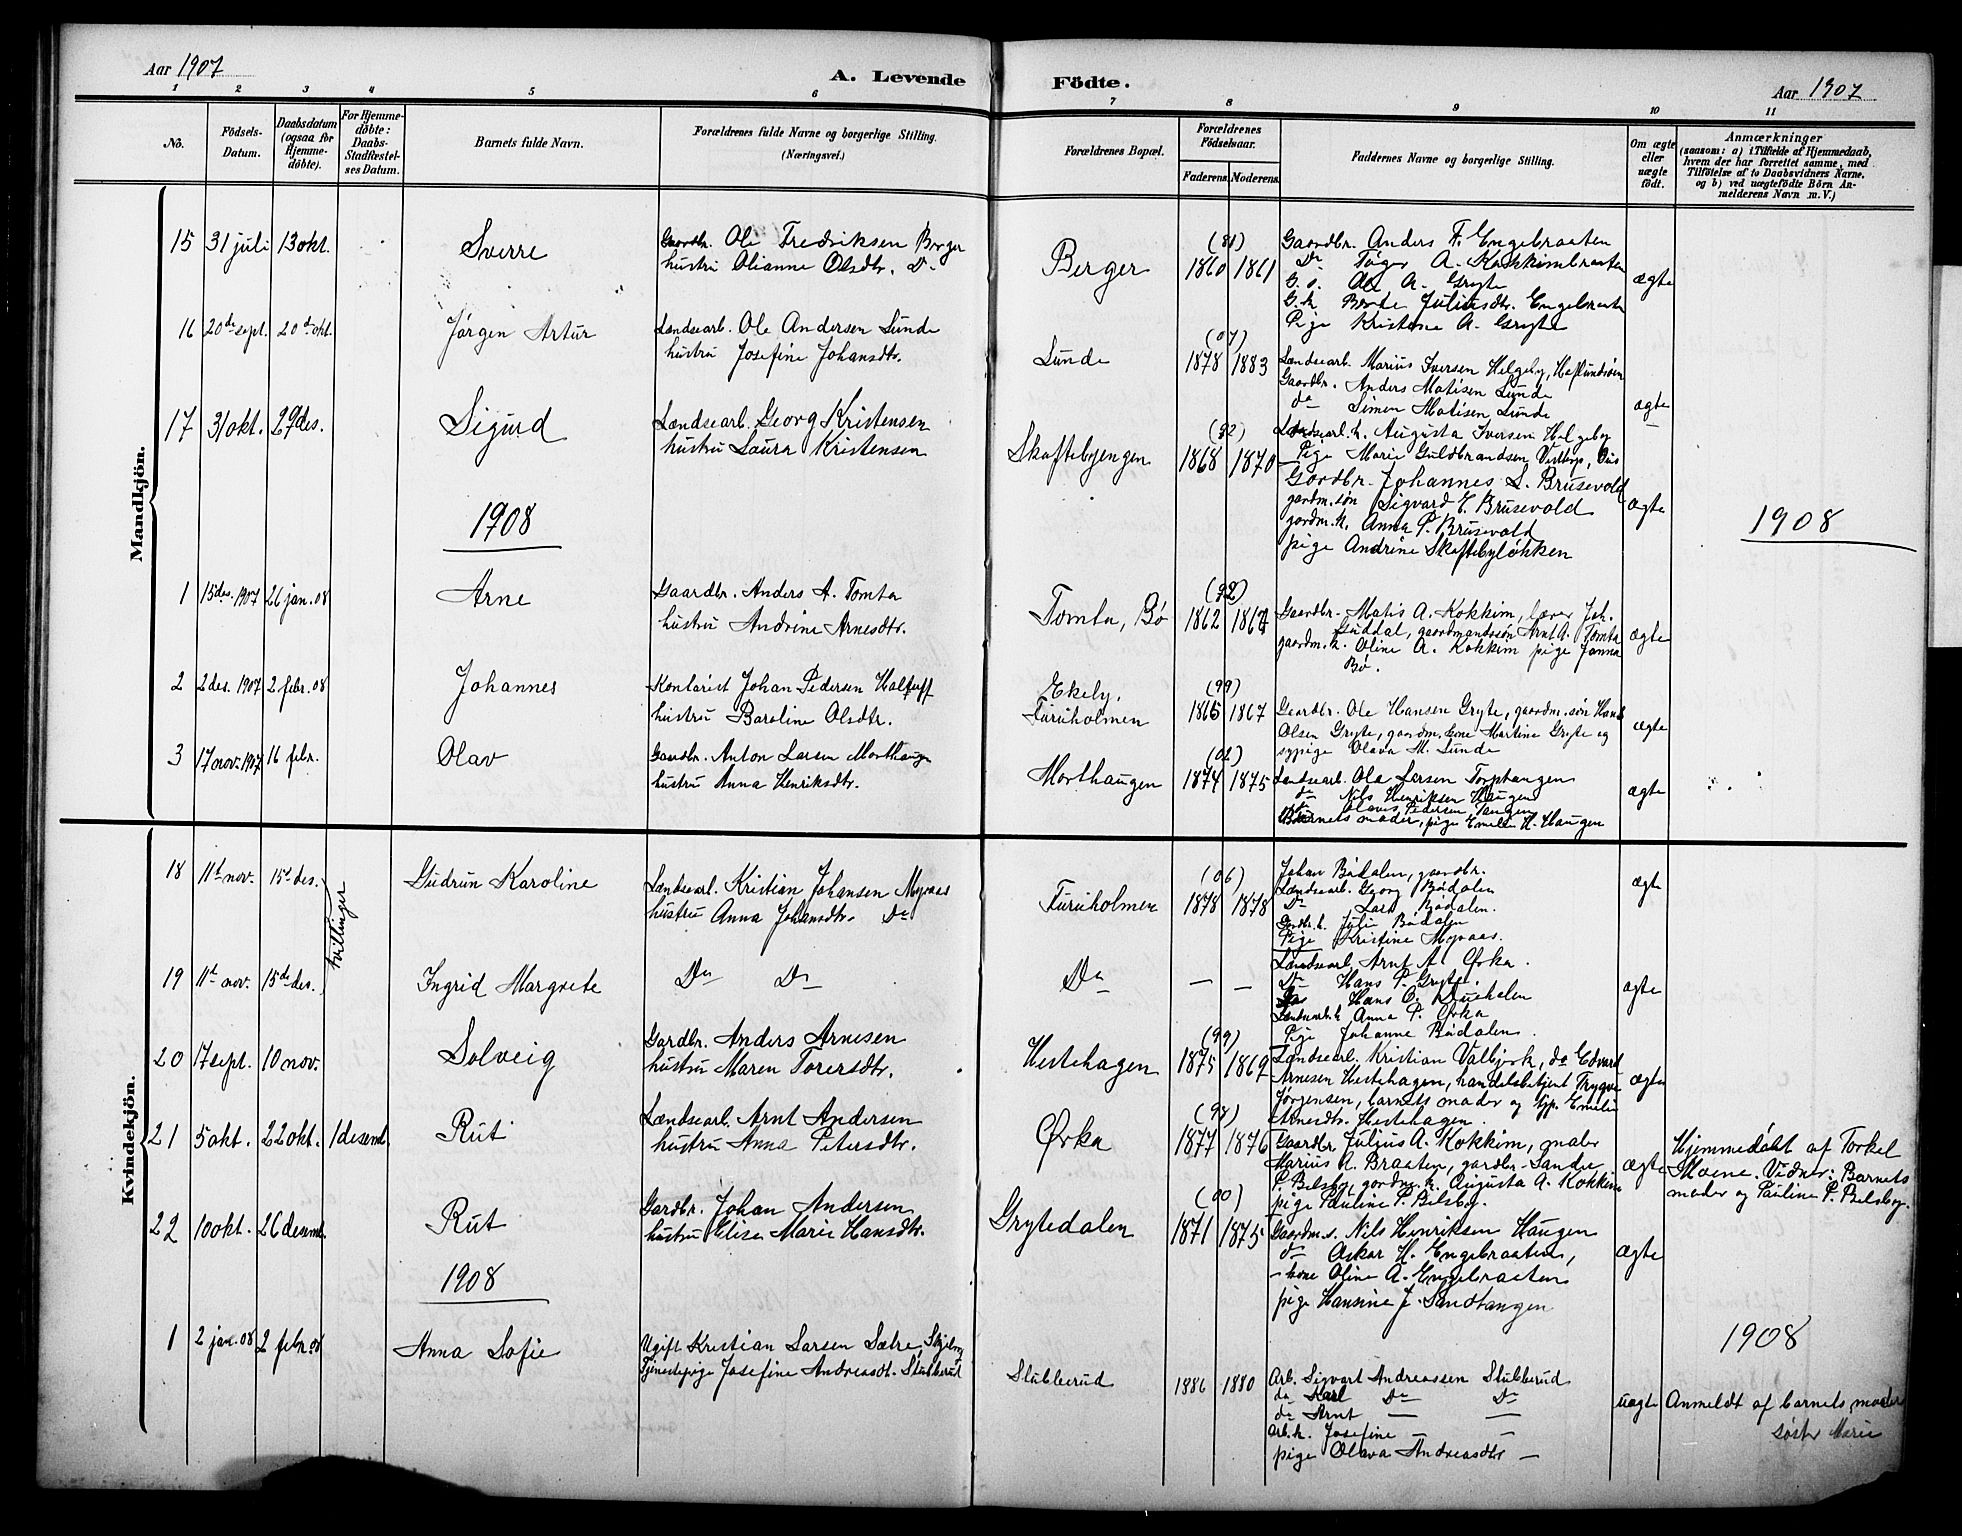 Aar 1907
A. Levende Födte.
Aar 1907
1 2 3 4 5 6 7 8 9 10 11
No.
Födsels-Datum.
Daabsdatum (ogsaa for Hjemme-döbte).
For Hjemme-döbte: Daabs-Stadfæstel-ses Datum.
Barnets fulde Navn.
Forældrenes fulde Navne og borgerlige Stilling.
(Næringsvei.)
Forældrenes Bopæl.
Forældrenes Födselsaar.
Faderens. Moderens.
Faddernes Navne og borgerlige Stilling.
Om ægte eller uægte födt.
Anmærkninger
(saasom: a) i Tilfælde af Hjemmedaab,
hvem der har forrettet samme, med
Tilföielse af to Daabsvidners Navne,
og b) ved uægtefödte Börn An-
melderens Navn m. V.)
Mandkjön.
15 31 juli 13 okt. Sverre
Gaardbr. Ole Fredriksen Berger
hustru Olianne Olsdtr. Do
Berger (81) 1860 1861
Gaardbr. Anders F. Engebraaten
Do A. Kokkimbraaten
G. s. Ole A. Gryte
G. k. Berte Juliusdtr. Engebraaten
Pige Kristine A. Gryte
ægte
16 20de sept. 20de okt. Jørgen Artur
Lændsearb. Ole Andersen Lunde
hustru Josefine Johansdtr.
Lunde (07) 1878 1883
Lændsearb. Marius Iversen Helgeby, Haslundsøen
Gaardbr. Anders Matisen Lunde
do Simen Matisen Lunde
Lændsearb. k. Augusta Iversen Helgeby
Pige Marie Guldbrandsen
ægte
17 31 okt. 29 des. Sigurd
Lændsearb. Georg Kristensen
hustru Laura Kristensen
Skaftebyengen (92) 1868 1870
Gårdbr. Johannes L. Brusevold
gardm. søn Sigvard E. Brusevold
gardm. k. Anna P. Brusevold
pige Andrine Skaftebyløkken
ægte
1908
1908
1 15 des. 1907 26 jan. 08 Arne
Gaardbr. Anders A. Tomta
hustru Andrine Arnesdtr.
Tomta, Bø (92) 1862 1864
Gaardbr. Matis A. Kokkim, lærer Joh.
Guddal, gaardmandssøn Arnt A. Tomta
gaardm. k. Oline A. Kokkim pige Janna
Bø.
ægte
2 2 des. 1907 2 febr. 08 Johannes
Kontorist Johan Pedersen
hustru Baroline Olsdtr.
Ekely, Furuholmen (99) 1865 1867
Gaardbr. Ole Hansen Gryte, gaardm. søn Hans
Olsen Gryte, gaardm. kone Martine Gryte og
sypige Olava M. Lunde
ægte
3 17 nov. 1907 16 febr. Olav
Gaardbr. Anton Larsen Morthaugen
hustru Anna Henriksdtr.
Morthaugen (02) 1874 1875
Lændsearb. Ole Larsen Torphaugen
do Nils Henriksen Haugen
Pedersen Haugen
Barnets moder, pige Emelie H. Haugen
ægte
Kvindekjön.
18 11te nov. 15de des. Gudrun Karoline
tvillinger
Lændsearb. Kristian Johansen Myraas
hustru Anna Johansdtr. Do
Furuholmen (06) 1878 1878
Johan Bødalen, gaardbr.
Lændsearb. Georg Bødalen
Do Lars Bødalen.
Gardbr. k. Julie Bødalen
Pige Kristine Myraas.
ægte
19 11te nov. 15de des. Ingrid Margrete
Do Do
Do — —
Lændsearb. Arnt A. Ørka.
Do Hans P. Gryte.
Hans O.
Lændsearb. k. Anna P. Ørka
Pige Johanne Bødalen.
ægte
20 17 sept. 10 nov. Solveig
Gardbr. Anders Arnesen
hustru Maren Torersdtr.
Hestehagen (99) 1875 1869
Lændsearb. Kristian Valbjørk, do Edvard
Arnesen Hestehagen, handelsbetjent Trygve
Jørgensen, barnets moder og Emilie
Arnesdtr. Hestehagen.
ægte
21 5 okt. 22 okt. 1 desemb. Rut
Lændsearb. Arnt Andersen
hustru Anna Petersdtr.
Ørka (97) 1877 1876
Gaardbr. Julius A. Kokkim, maler
Marius A. Braaten, gardbr. Sander
P. Belsby, gardm. k. Augusta A. Kokkim
pige Pauline P. Belsby.
ægte
Hjemmedøbt af Torkel
Moene. Vidner: Barnets
moder og Pauline P. Belsby.
22 10 okt. 26 desemb. Rut
Gardbr. Johan Andersen
hustru Elise Marie Hansdtr.
Grytedalen (00) 1871 1875
Gaardm. s. Nils Henriksen Haugen
do Askar H. Engebraaten,
— kone Oline A. Engebraaten
pige Hansine J. Sandtangen
ægte
1908
1908
1 2 jan. 08 2 febr. 08 Anna Sofie
Ugift Kristian Larsen Sætre,
Tjenestepige Josefine Andreasdt. Stubberud
Stubberud 1886 1880
Arb. Sigvart Andreassen Stubberud
do Karl Do Do
do Arnt — —
Arb. k. Josefine — —
pige Olava Andreasdtr —
uægte
Anmeldt af barnets moders
søster Marie